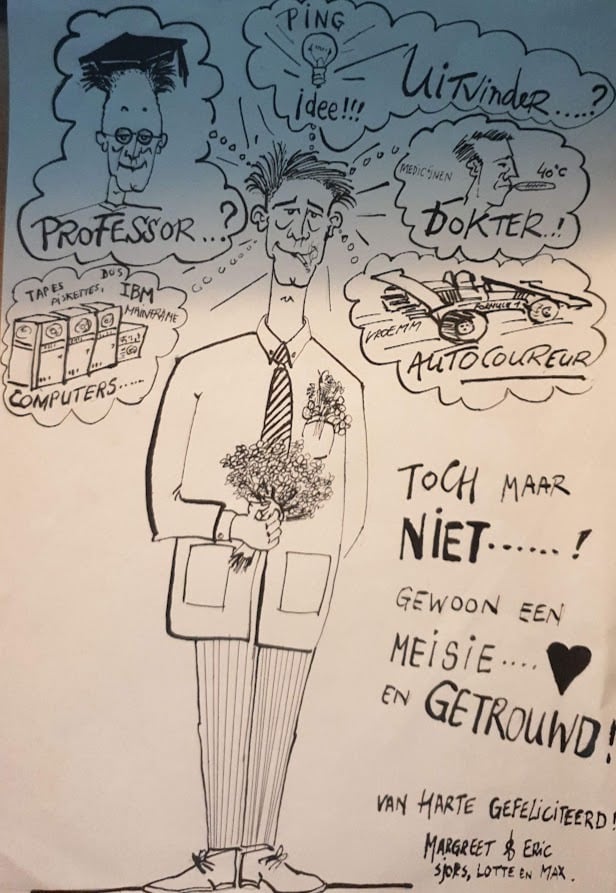 PING
idee!!!
UiTViNDER.....?
PROFESSOR...?
MEDICIJNEN
40°C
DOKTER..!
TAPES
DISKETTES,
DOS
IBM
MAINFRAME
COMPUTERS.....
FORMULE 1
VROEMM
AUTOCOUREUR
TOCH MAAR
NIET......!
GEWOON EEN
MEISIE....
EN GETROUWD!
VAN HARTE GEFELICITEERD!
MARGREET & ERIC
SJORS, LOTTE EN MAX.